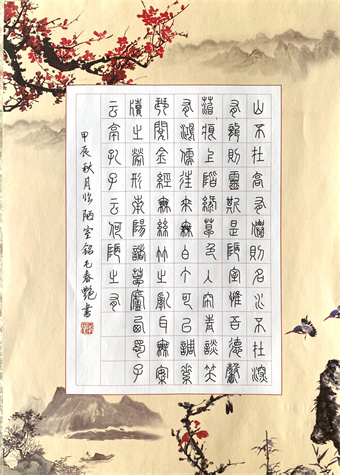 山不在高有仙則名水不在深
有龍則靈斯是陋室惟吾德馨
苔痕上階綠草色入簾青談笑
有鴻儒往來無白丁可以調素
琴閱金經無絲竹之亂耳無案
牘之勞形南陽諸葛廬西蜀子
云亭孔子云何陋之有
甲辰秋月临陋室銘毛春艷書